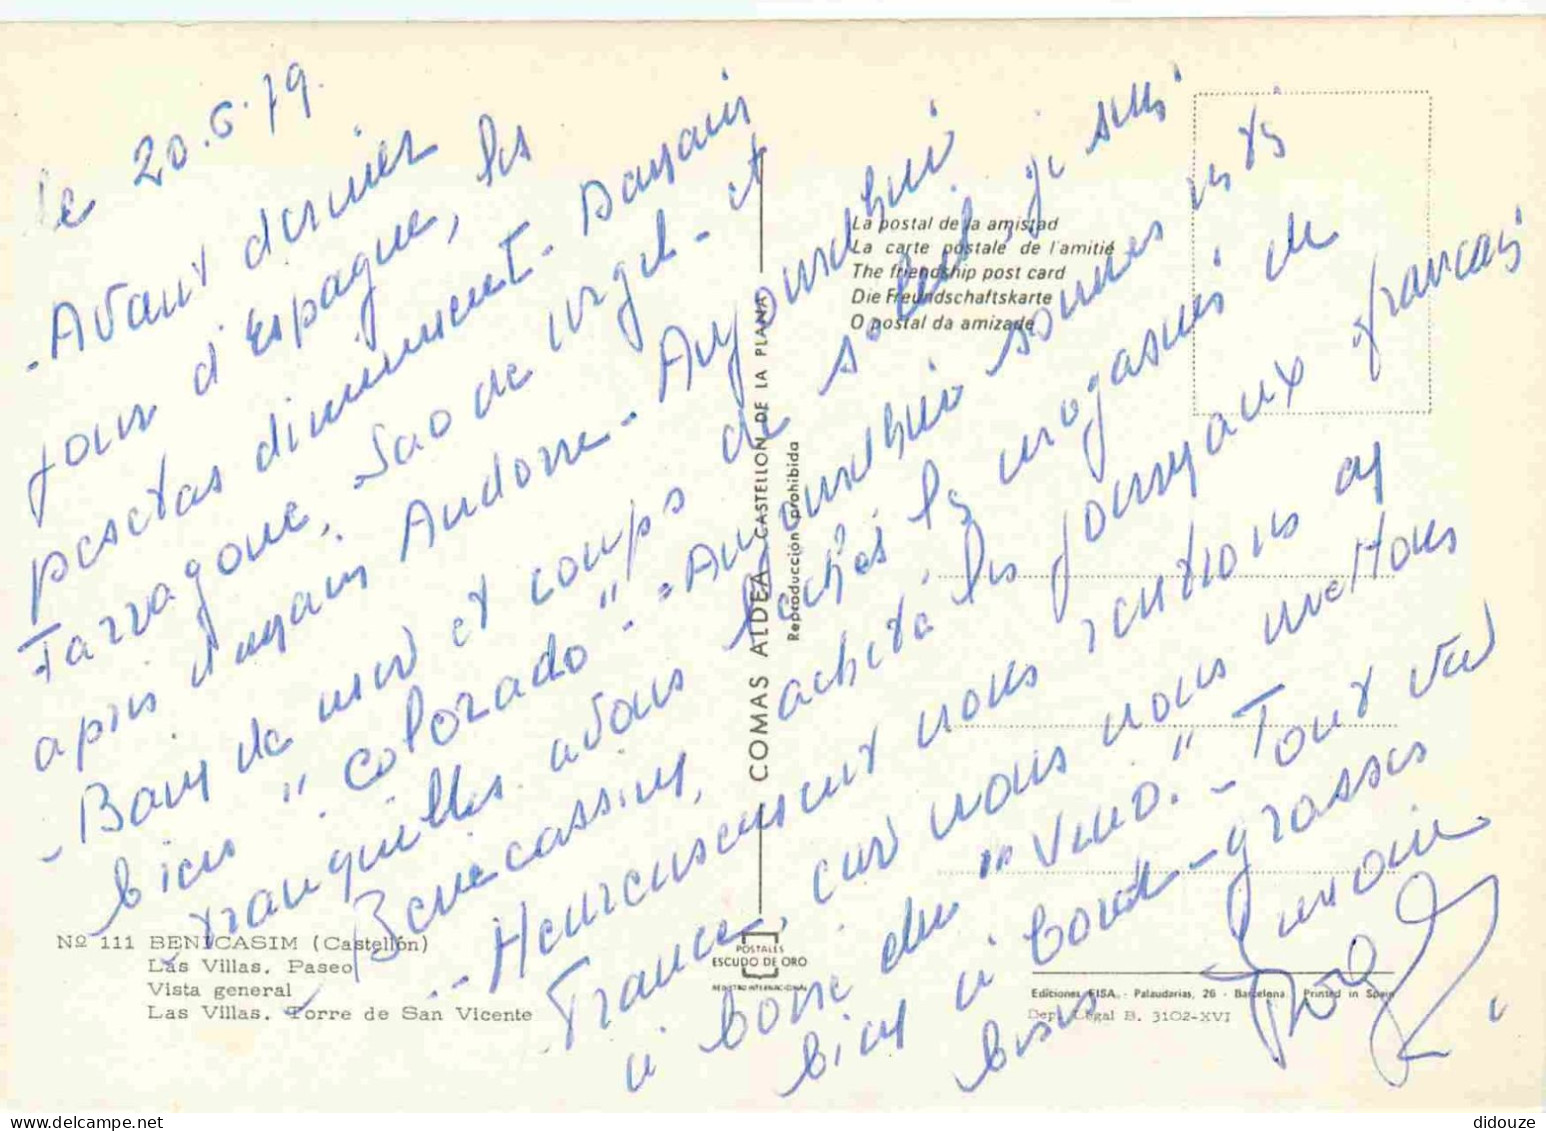 le 20.6.79.
- Avant dernier
jour d'Espagne, les
pesetas diminuent - Demain
Tarragone, Sao de Urgel - et
après demain Andorre - Aujourdhui
- Bains de mer et coups de soleil, je suis
bien "colorado" - Aujourdhui sommes restés
tranquilles avons les magasins de
Benicassim, acheté les journaux français
- Heureusement nous rentrons en
France, car nous nous mettons
à boire du "Vino." - Tout va
bien à bord - grosses
bises
La postal de la amistad
La carte postale de l'amitié
The friendship post card
Die Freundschaftskarte
O postal da amizade
COMAS ALDEA - CASTELLON DE LA PLANA
Reproducción prohibida
Nº 111 BENICASIM (Castellón)
Las Villas. Paseo
Vista general
Las Villas. Torre de San Vicente
POSTALES
ESCUDO DE ORO
REGISTRO INTERNACIONAL
Ediciones FISA. - Palaudarias, 26 - Barcelona. Printed in Spain
Dep. Legal B. 3102-XVI
didouze